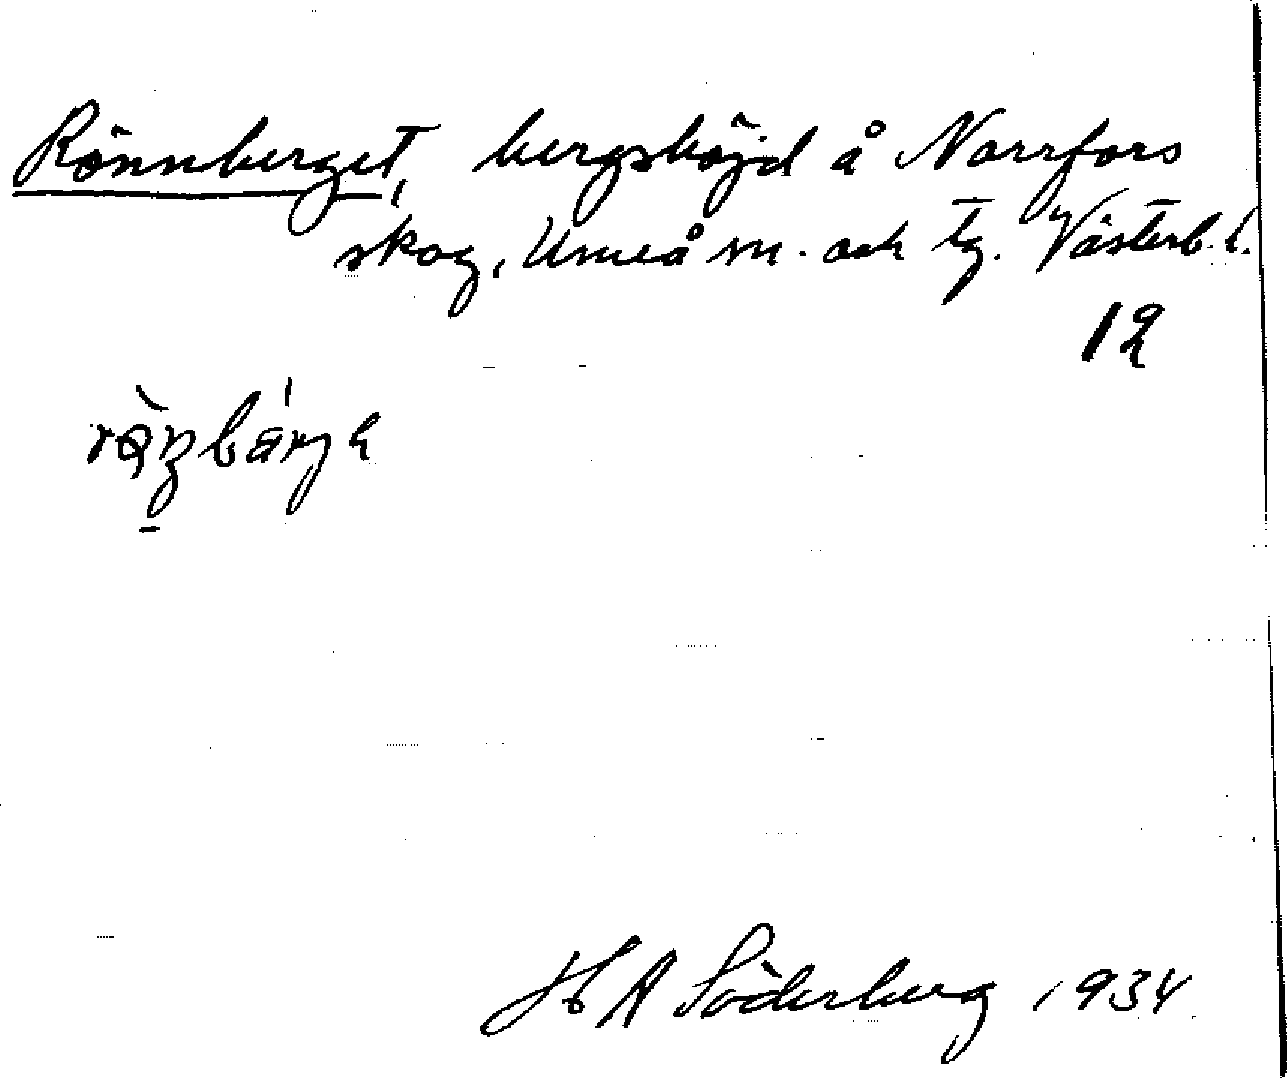 Rönnberget, bergshöjd å Norrfors
skog, Umeå sn. och tg. Västerb. l.
12
H A Söderberg 1934